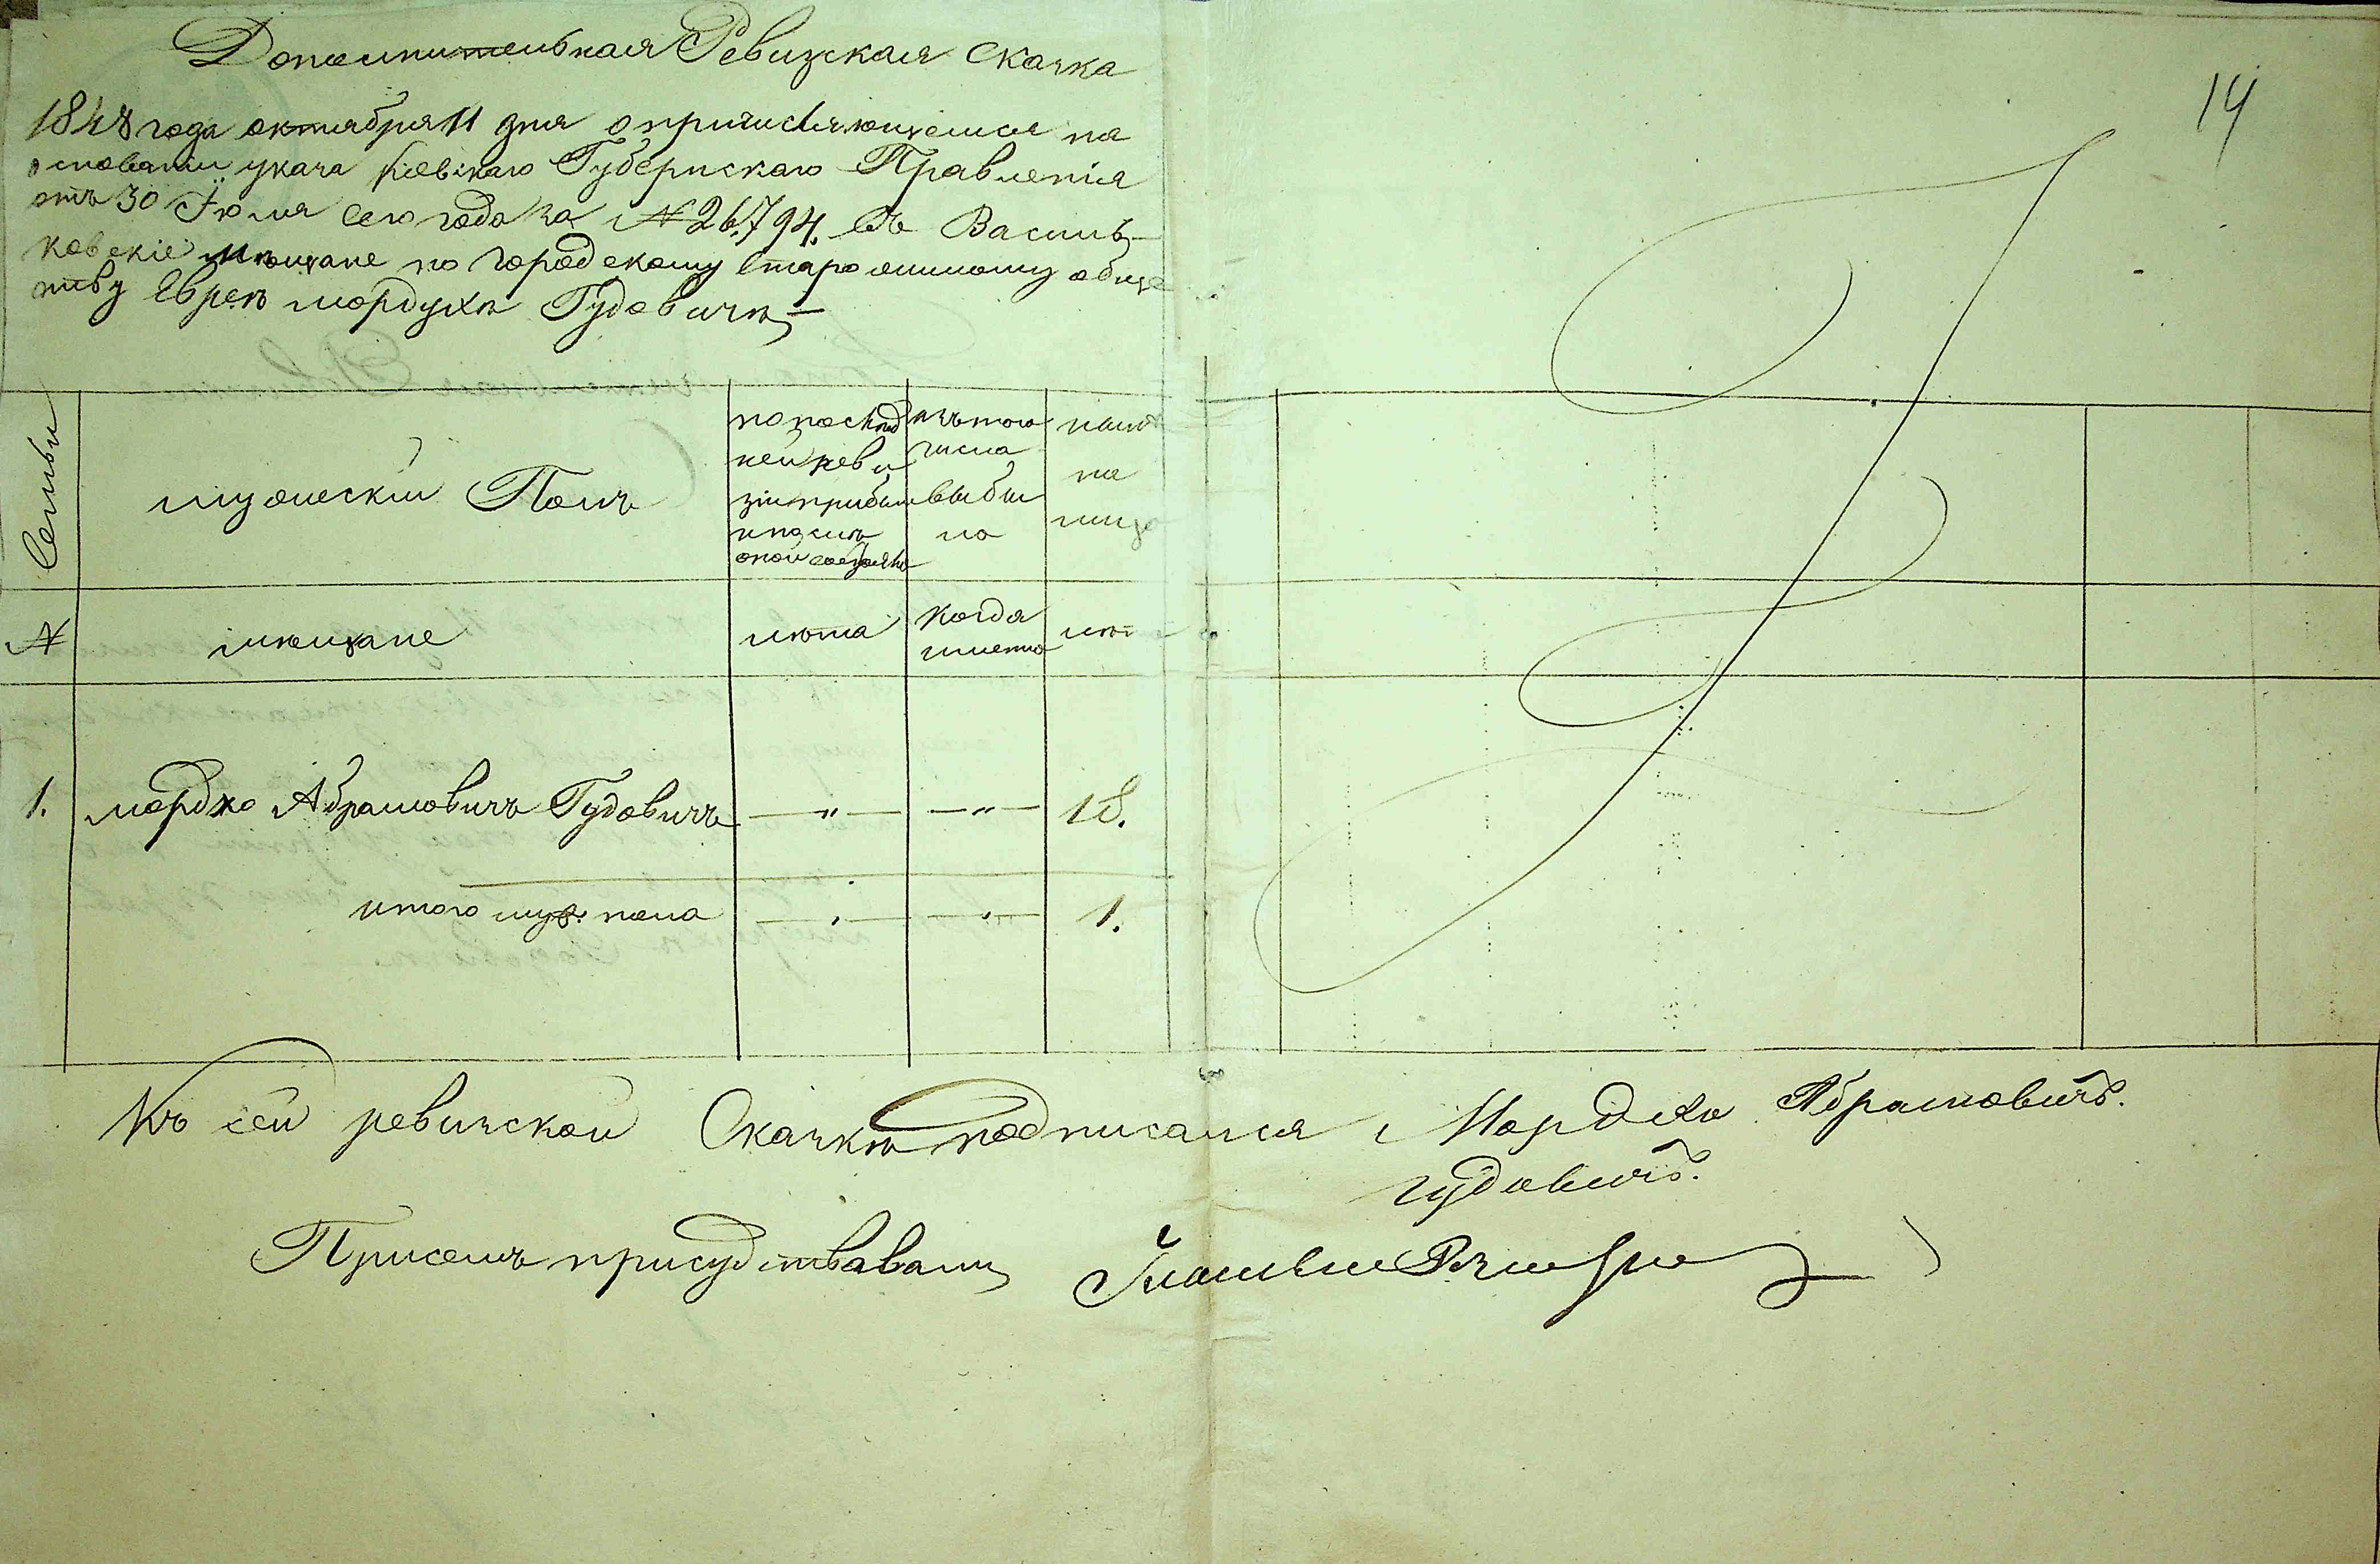 Дополнительная Ревизская Сказка
1848 года октября 11 дня о причисляющемся на
основании указа Киевскаго Губернскаго Правленія
отъ 30 Іюля сего года за № 26,794. въ Василь-
ковскіе мѣщане по городскому старожилому обще
ству Еврею Мордухѣ Гудовичѣ
14
Семьи
мужескій Полъ
по послѣд
ней реви
зіи прибыло
и послѣ
оной
изъ того
числа
выбы
ло
нынѣ
на
лицо
№
мѣщане
лѣта
когда
именно
лѣт
1. Мордко Абрамовичъ Гудовичъ — " — — " — 18.
итого муж. пола — " — — " — 1.
Къ сей ревизской Сказкѣ подписался Мордко Абрамовичъ
Гудовичъ.
При семъ присудствавалъ